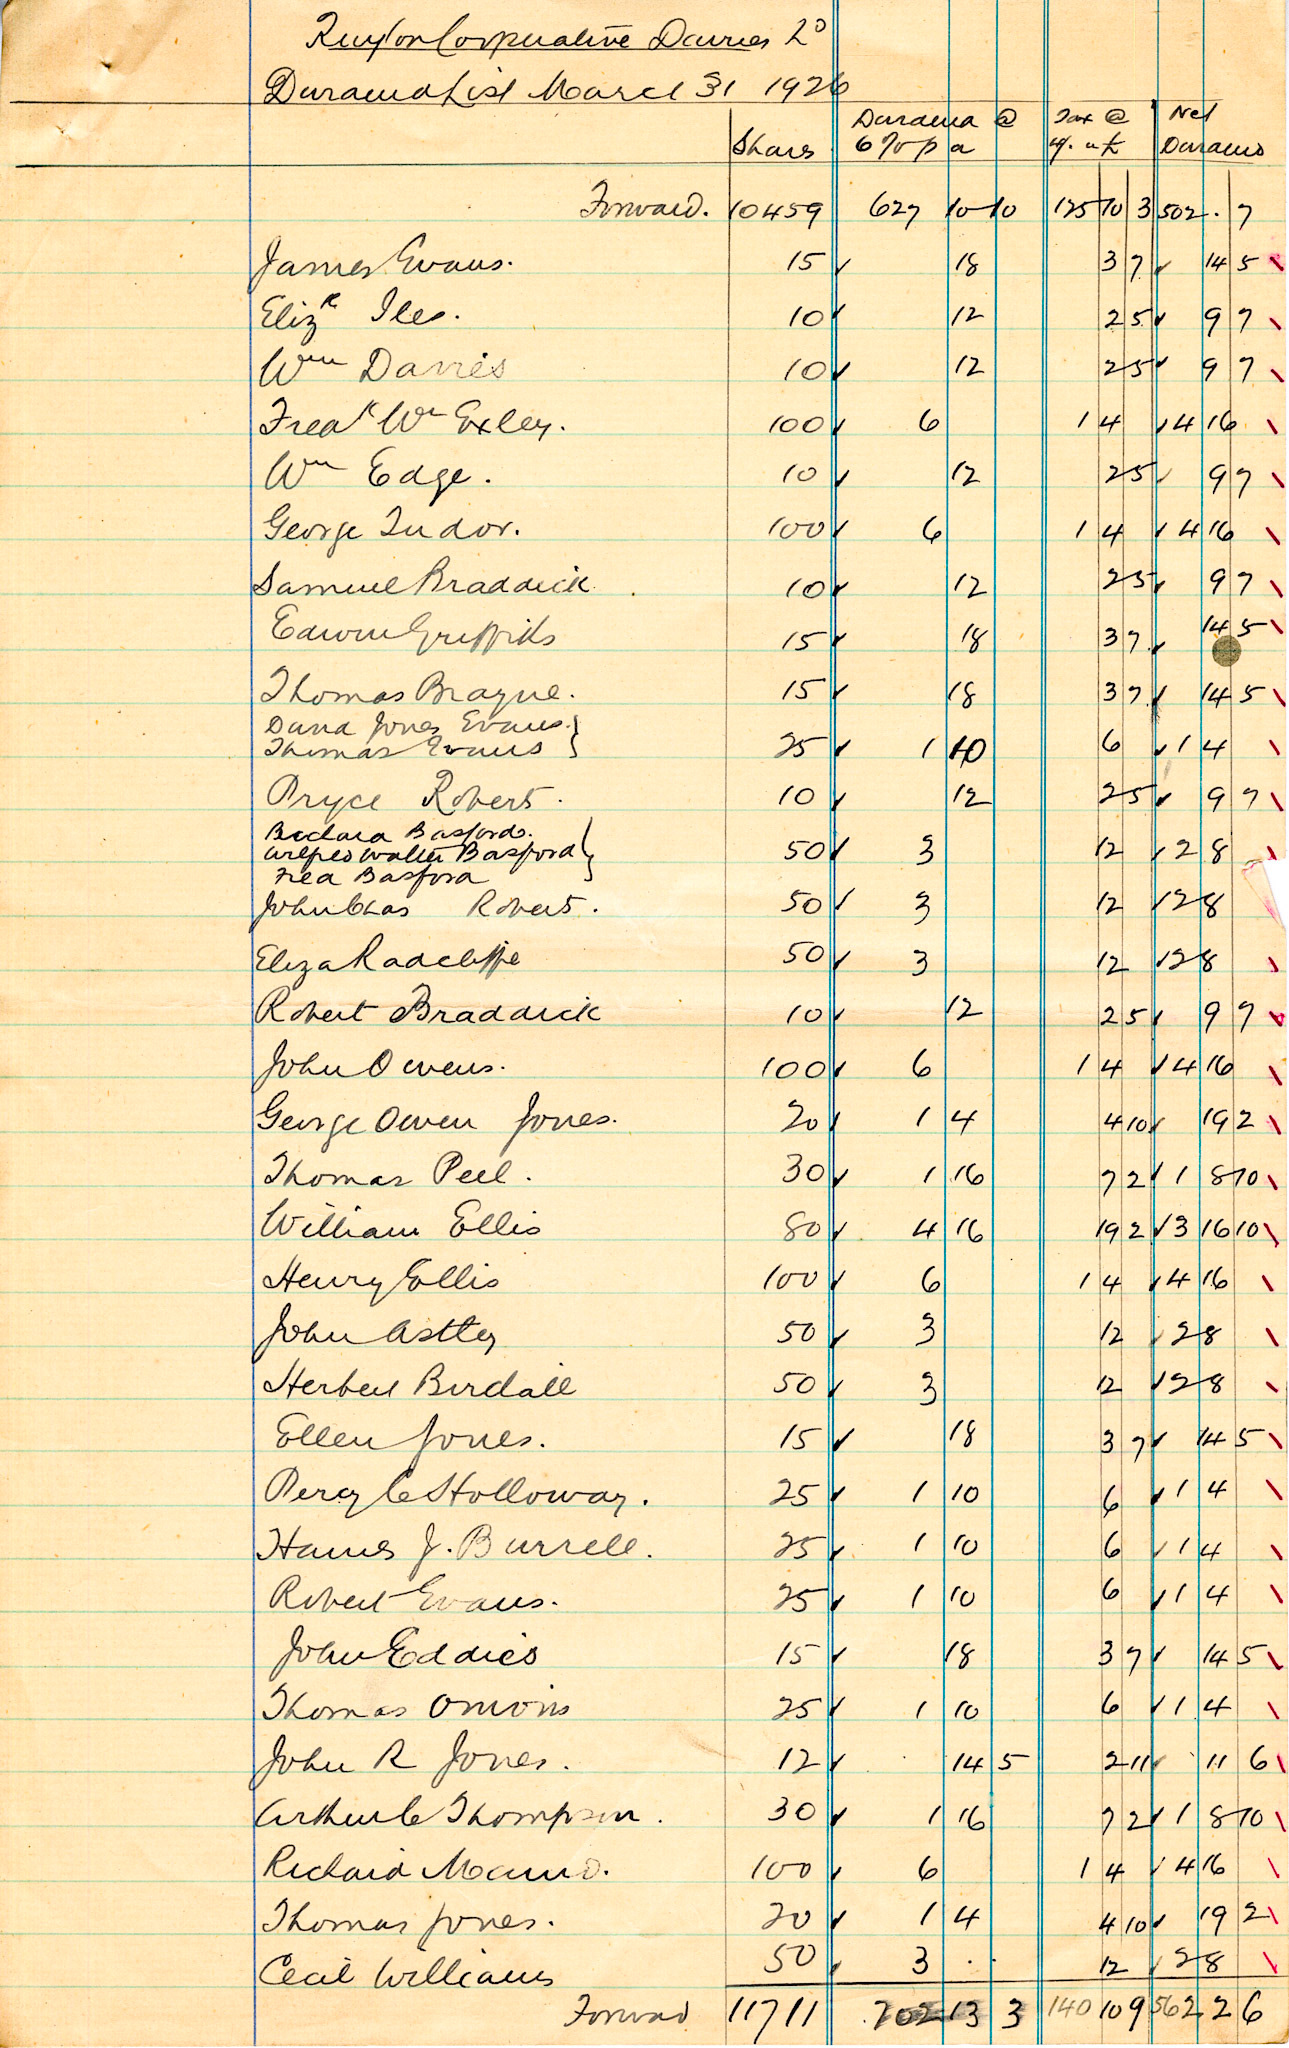 Ruyton Cooperative Dairies Ld
Dividend List March 31 1926
Shares Dividend @ 6% p a Tax @ 4/- in £ Net Dividend
Forward. 10459 627 10 10 125 10 3 502 . 7
James Evans. 15 18 3 7 14 5
Elizh Iles. 10 12 2 5 9 7
Wm Davies 10 12 2 5 9 7
Fredk Wm Exley. 100 6 1 4 4 16
Wm Edge. 10 12 2 5 9 7
George Tudor. 100 6 1 4 4 16
Samuel Braddick 10 12 2 5 9 7
Edwin Griffiths 15 18 3 7 14 5
Thomas Brayne. 15 18 3 7 14 5
David Jones Evans. }
Thomas Evans } 25 1 10 6 1 4
Pryce Roberts. 10 12 2 5 9 7
Basford. }
Alfred Walter Basford } 50 3 12 2 8
Fred Basford }
John Chas Roberts. 50 3 12 2 8
Eliza Radcliffe 50 3 12 2 8
Robert Braddick 10 12 2 5 9 7
John Owens. 100 6 1 4 4 16
George Owen Jones. 20 1 4 4 10 19 2
Thomas Peel. 30 1 16 7 2 1 8 10
William Ellis 80 4 16 19 2 3 16 10
Henry Ellis 100 6 1 4 4 16
John Astley 50 3 12 2 8
Herbert Birdall 50 3 12 2 8
Ellen Jones. 15 18 3 7 14 5
Percy C Holloway. 25 1 10 6 1 4
J. Burrell. 25 1 10 6 1 4
Robert Evans. 25 1 10 6 1 4
John Eddies 15 18 3 7 14 5
Thomas Onions 25 1 10 6 1 4
John R Jones. 12 14 5 2 11 11 6
Arthur C Thompson. 30 1 16 7 2 1 8 10
Richard 100 6 1 4 4 16
Thomas Jones. 20 1 4 4 10 19 2
Cecil Williams 50 3 . . 12 2 8
Forward 11711 702 13 3 140 10 9 562 2 6